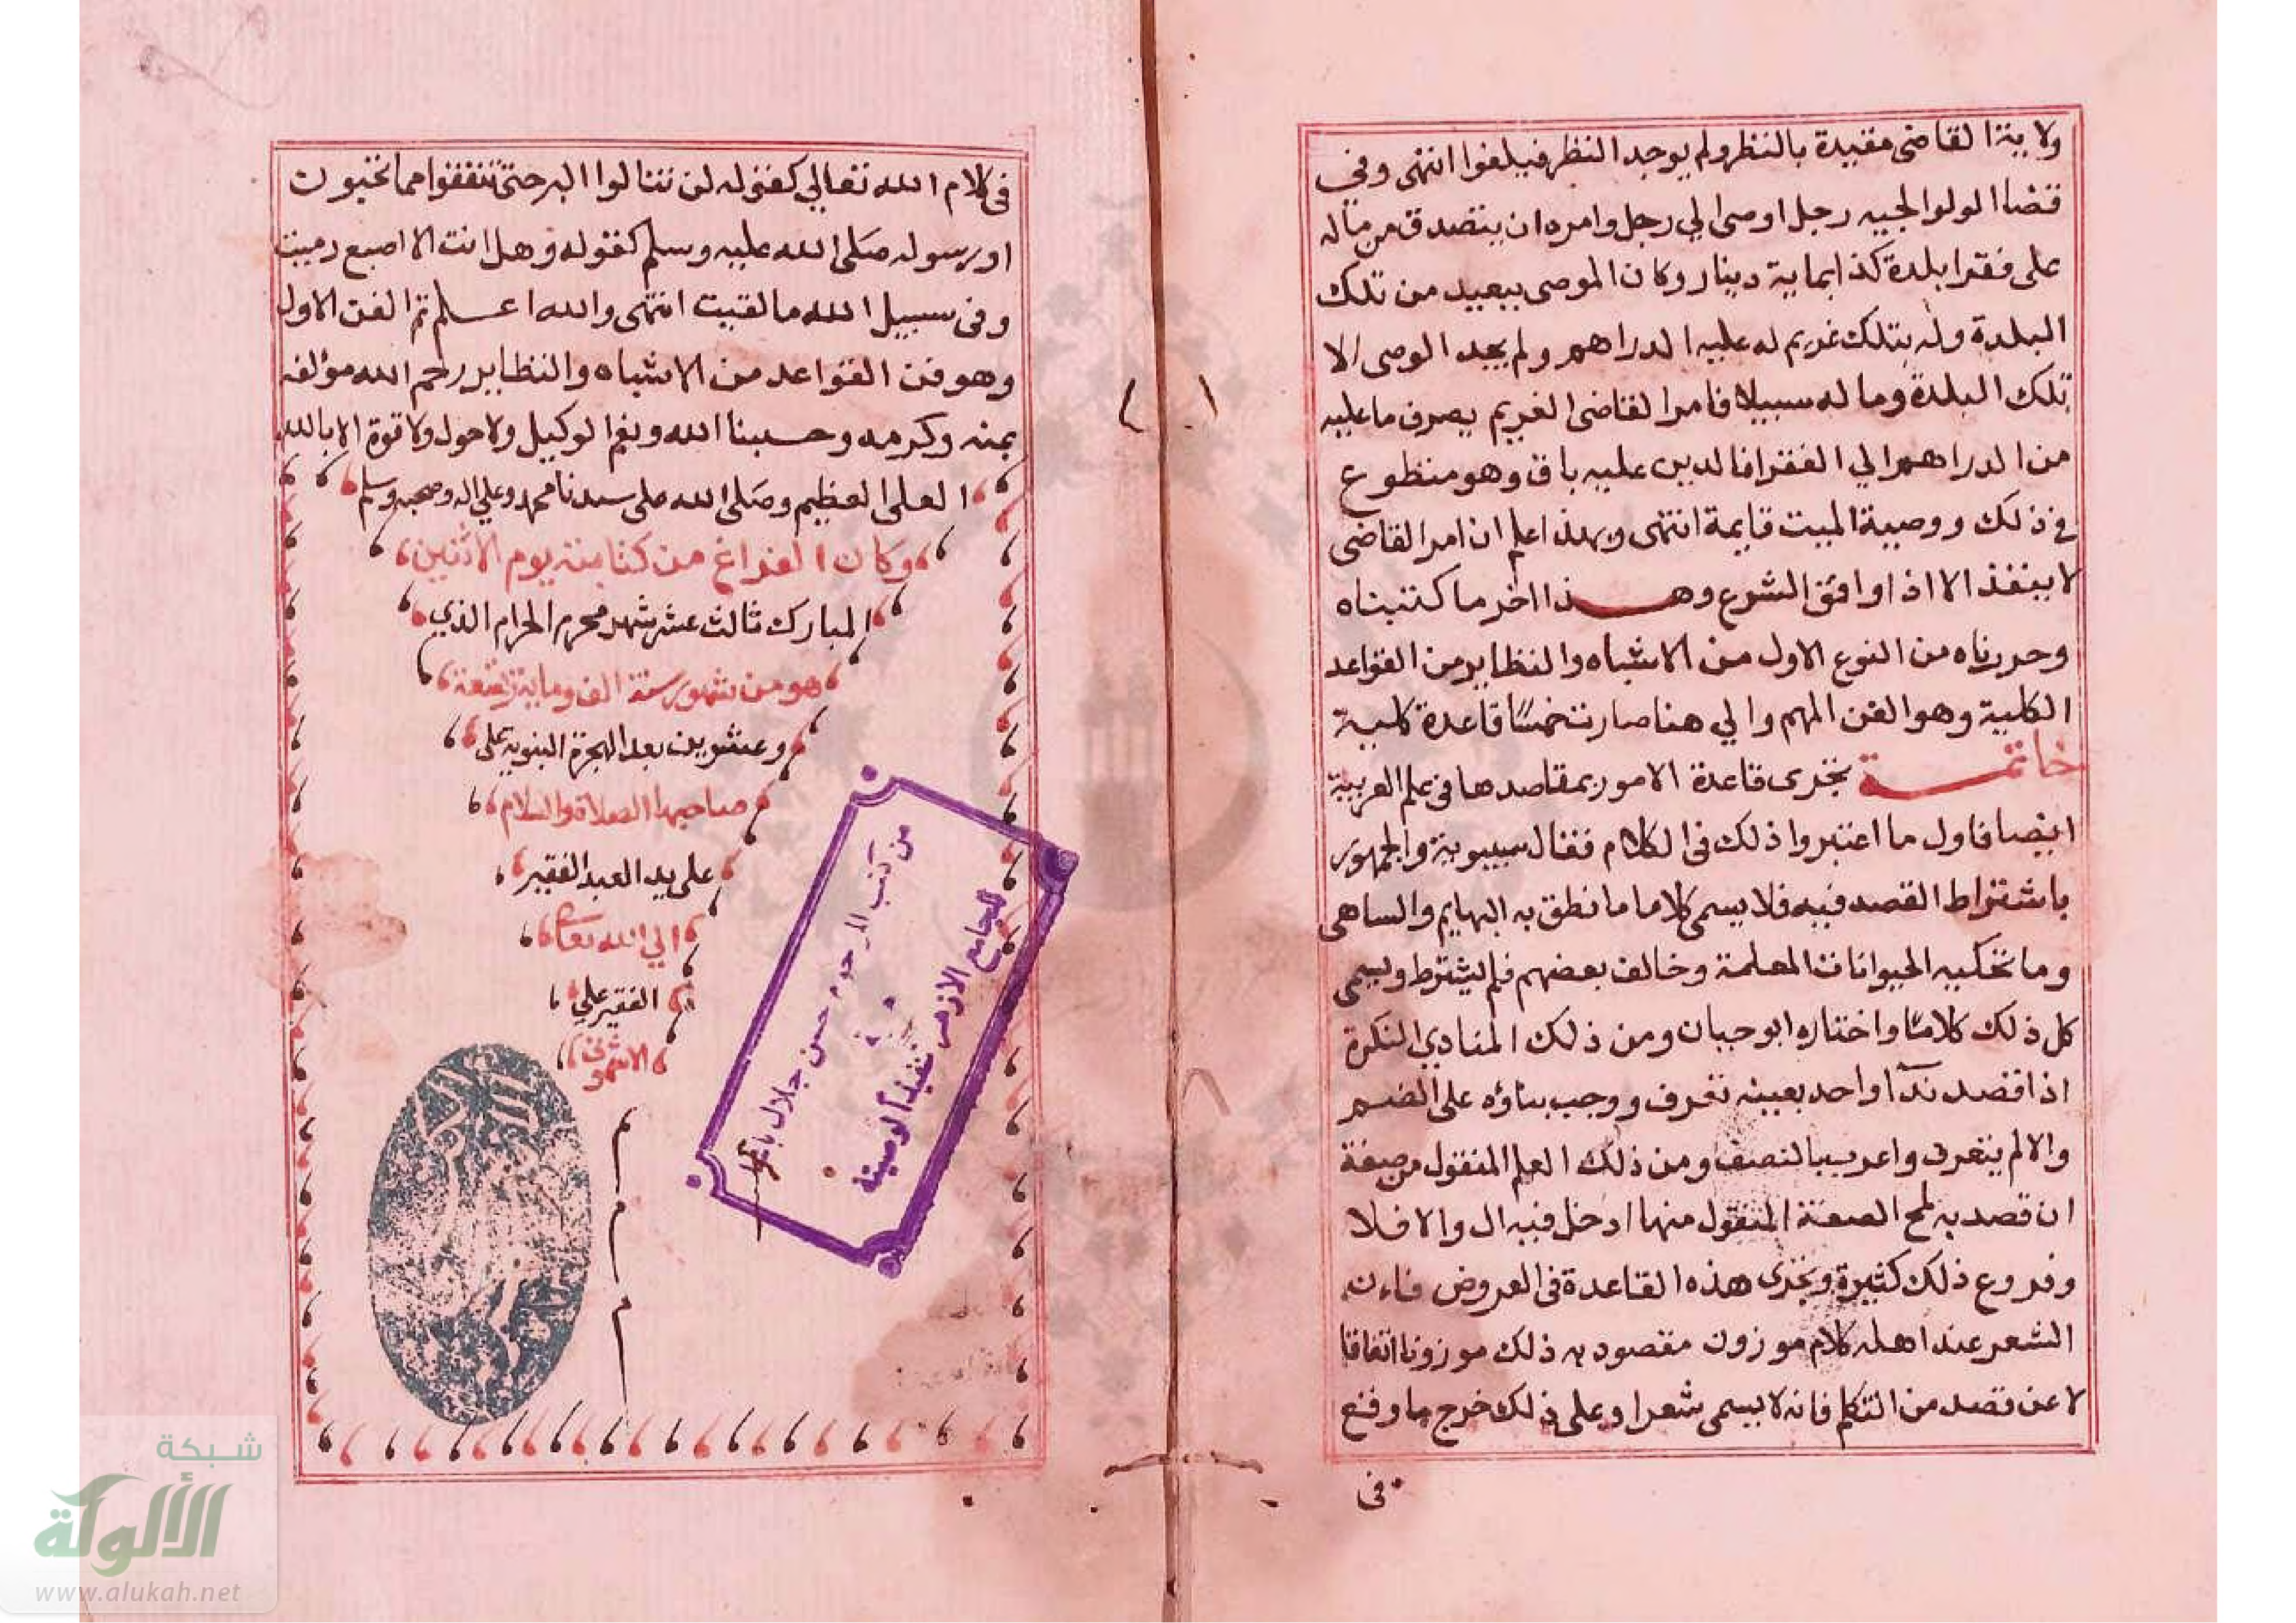 ولاية القاضى مقيدة بالنظر ولم يوجد النظر فيلغوا انتهى وفي
قضا الولوالجيه رجل اوصى الي رجل وامره ان يتصدق من ماله
على فقرا بلدة كذا بماية دينار وكان الموصى ببعيد من تلك
البلدة وله بتلك غريم له عليه الدراهم ولم يجد الوصى الا
تلك البلدة وماله سبيلا فامر القاضى الغريم يصرف ما عليه
من الدراهم الي الفقرا فالدين عليه باق وهو متطوع
في ذلك ووصية الميت قايمة انتهى وبهذا علم ان امر القاضى
لا ينفذ الا اذا وافق الشرع وهذا اخر ما كتبناه
وحررناه من النوع الاول من الاشباه والنظاير من القواعد
الكلية وهو الفن المهم والي هنا صارت خمسا قاعدة كلية
خاتمة تجرى قاعدة الامور بمقاصدها فى علم العربية
ايضا فاول ما اعتبروا ذلك فى الكلام فقال سيبويه والجمهور
باشتراط القصد فيه فلا يسمى كلاما ما نطق به البهايم والساهى
وما تحكيه الحيوانات المعلمة وخالف بعضهم فلم يشترط ويسمى
كل ذلك كلاما واختاره ابو حيان ومن ذلك المنادي النكرة
اذا قصد ندآ واحد بعينه تعرف ووجب بناؤه على الضم
والا لم يتعرف واعرب بالنصب ومن ذلك العلم المنقول من صفة
ان قصد به لمح الصفة المنقول منها ادخل فيه ال والا فلا
وفروع ذلك كثيرة وتجرى هذه القاعدة فى العروض فان
الشعر عند اهله كلام موزون مقصود به ذلك موزونا اتفاقا
لا عن قصد من التكلم فانه لا يسمى شعرا وعلى ذلك خرج ما وقع
فى
فى كلام الله تعالي كقوله لن تنالوا البر حتى تنفقوا مما تحبون
او رسوله صلى الله عليه وسلم كقوله وهل انت الا اصبع دميت
وفى سبيل الله ما لقيت انتهى والله اعلم تم الفن الاول
وهو فن القواعد من الاشباه والنظاير رحم الله مؤلفه
بمنه وكرمه وحسبنا الله ونعم الوكيل ولا حول ولا قوة الا بالله
العلى العظيم وصلى الله على سيدنا محمد وعلي اله وصحبه وسلم
وكان الفراغ من كتابته يوم الاثنين
المبارك ثالث عشر شهر محرم الحرام الذي
هو من شهور سنة الف وماية تسعة
وعشرين بعد الهجرة النبوية على
صاحبها الصلاة والسلام
على يد العبد الفقير
الي الله تعالى
الفقير علي
الاشمونى
م
م
م
من كتب المرحوم حسن جلال باشا
للجامع الازهر تنفيذاً لوصيته
شبكة
الألوكة
www.alukah.net